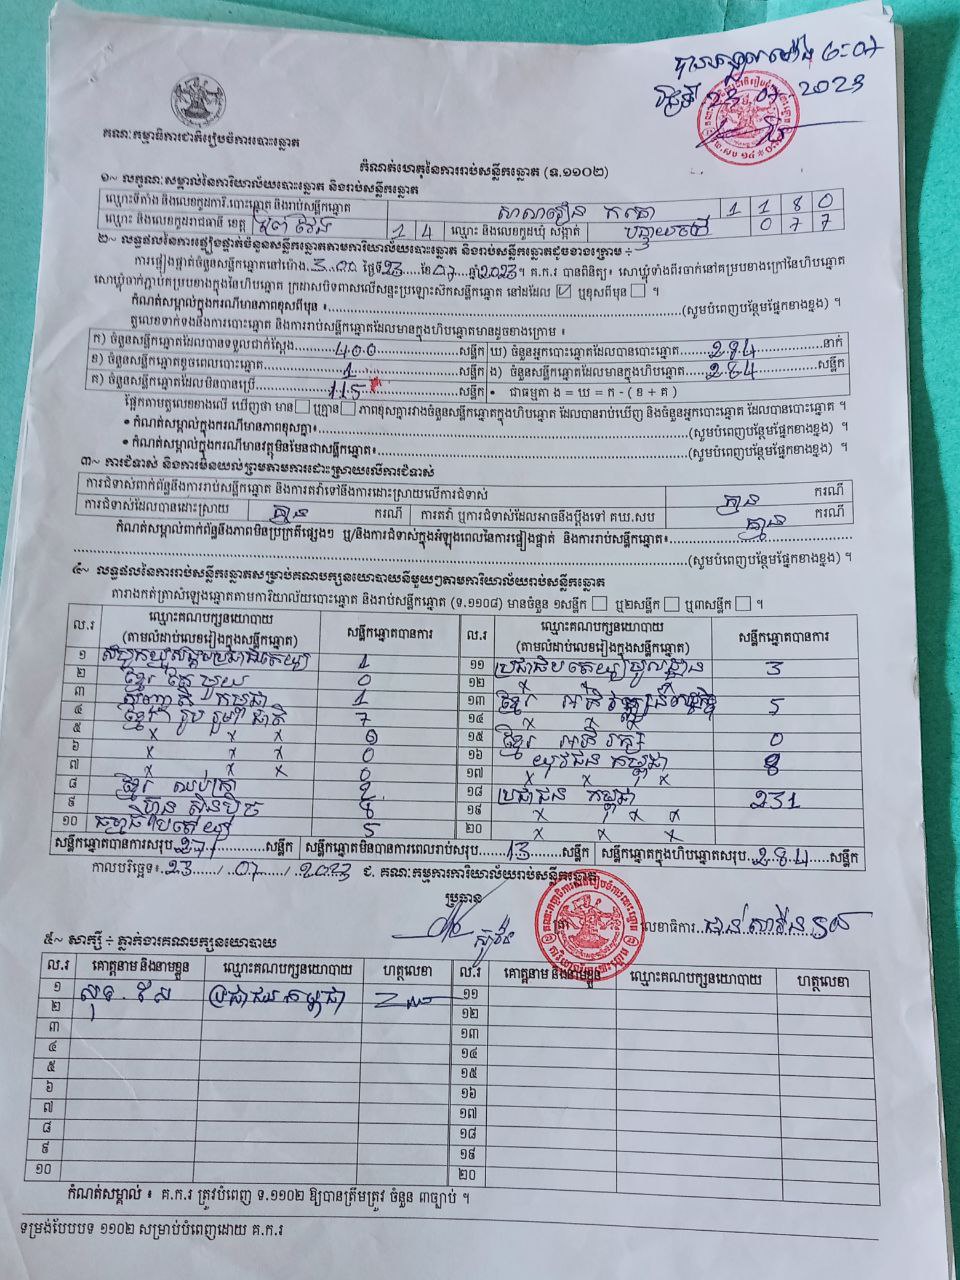 ២៣.០៧.២០២៣
គណៈកម្មាធិការជាតិរៀបចំការបោះឆ្នោត
កំណត់ហេតុនៃការរាប់សន្លឹកឆ្នោត (ទ.១១០២)
១~ លក្ខណៈសម្គាល់នៃការិយាល័យបោះឆ្នោត និងរាប់សន្លឹកឆ្នោត
ឈ្មោះទីតាំង និងលេខកូដការិ.បោះឆ្នោត និងរាប់សន្លឹកឆ្នោត 1 1 8 0
ឈ្មោះ និងលេខកូដរាជធានី ខេត្ត ព្រៃវែង 1 4 ឈ្មោះ និងលេខកូដឃុំ សង្កាត់ 0 7 7
២~ លទ្ធផលនៃការផ្ទៀងផ្ទាត់ចំនួនសន្លឹកឆ្នោតតាមការិយាល័យបោះឆ្នោត និងរាប់សន្លឹកឆ្នោតដូចខាងក្រោម ÷
ការផ្ទៀងផ្ទាត់ចំនួនសន្លឹកឆ្នោតនៅម៉ោង.3.00 ថ្ងៃទី.23 ខែ.07 ឆ្នាំ2023 ។ គ.ក.រ បានពិនិត្យ៖ សោឃ្លុំទាំងពីរចាក់នៅគម្របខាងក្រៅនៃហិបឆ្នោត
សោឃ្លុំចាក់ភ្ជាប់គម្របខាងក្នុងនៃហិបឆ្នោត ក្រដាសបិទពាសលើសន្ទះប្រឡោះសិកសន្លឹកឆ្នោត នៅដដែល ☑ ឬខុសពីមុន ☐ ។
កំណត់សម្គាល់ក្នុងករណីមានភាពខុសពីមុន ៖ (សូមបំពេញបន្ថែមផ្នែកខាងខ្នង) ។
តួលេខទាក់ទងនឹងការបោះឆ្នោត និងការរាប់សន្លឹកឆ្នោតដែលមានក្នុងហិបឆ្នោតមានដូចខាងក្រោម ៖
ក) ចំនួនសន្លឹកឆ្នោតដែលបានទទួលជាក់ស្តែង 400 សន្លឹក ឃ) ចំនួនអ្នកបោះឆ្នោតដែលបានបោះឆ្នោត 284 នាក់
ខ) ចំនួនសន្លឹកឆ្នោតខូចពេលបោះឆ្នោត 1 សន្លឹក ង) ចំនួនសន្លឹកឆ្នោតដែលមានក្នុងហិបឆ្នោត 284 សន្លឹក
គ) ចំនួនសន្លឹកឆ្នោតដែលមិនបានប្រើ 115 សន្លឹក • ជាធម្មតា ង = ឃ = ក - ( ខ + គ )
ផ្អែកតាមតួលេខខាងលើ ឃើញថា មាន ☐ ឬគ្មាន ☐ ភាពខុសគ្នារវាងចំនួនសន្លឹកឆ្នោតក្នុងហិបឆ្នោត ដែលបានរាប់ឃើញ និងចំនួនអ្នកបោះឆ្នោត ដែលបានបោះឆ្នោត ។
• កំណត់សម្គាល់ក្នុងករណីមានភាពខុសគ្នា៖ (សូមបំពេញបន្ថែមផ្នែកខាងខ្នង) ។
• កំណត់សម្គាល់ក្នុងករណីមានវត្ថុមិនមែនជាសន្លឹកឆ្នោត៖ (សូមបំពេញបន្ថែមផ្នែកខាងខ្នង) ។
៣~ ការជំទាស់ និងការមិនយល់ព្រមតាមការដោះស្រាយលើការជំទាស់
ការជំទាស់ពាក់ព័ន្ធនឹងការរាប់សន្លឹកឆ្នោត និងការតវ៉ាទៅនឹងការដោះស្រាយលើការជំទាស់ គ្មាន ករណី
ការជំទាស់ដែលបានដោះស្រាយ គ្មាន ករណី ការតវ៉ា ឬការជំទាស់ដែលអាចនឹងប្តឹងទៅ គឃ.សប គ្មាន ករណី
កំណត់សម្គាល់ពាក់ព័ន្ធនឹងភាពមិនប្រក្រតីផ្សេងៗ ឬ/និងការជំទាស់ក្នុងអំឡុងពេលនៃការផ្ទៀងផ្ទាត់ និងការរាប់សន្លឹកឆ្នោត៖
(សូមបំពេញបន្ថែមផ្នែកខាងខ្នង) ។
៤~ លទ្ធផលនៃការរាប់សន្លឹកឆ្នោតសម្រាប់គណបក្សនយោបាយនីមួយៗតាមការិយាល័យរាប់សន្លឹកឆ្នោត
តារាងកត់ត្រាសំឡេងឆ្នោតតាមការិយាល័យបោះឆ្នោត និងរាប់សន្លឹកឆ្នោត (ទ.១១០៨) មានចំនួន ១សន្លឹក ☐ ឬ២សន្លឹក ☐ ឬ៣សន្លឹក ☐ ។
ល.រ ឈ្មោះគណបក្សនយោបាយ (តាមលំដាប់លេខរៀងក្នុងសន្លឹកឆ្នោត) សន្លឹកឆ្នោតបានការ ល.រ ឈ្មោះគណបក្សនយោបាយ (តាមលំដាប់លេខរៀងក្នុងសន្លឹកឆ្នោត) សន្លឹកឆ្នោតបានការ
១ 1 ១១ ប្រជាធិបតេយ្យមូលដ្ឋាន 3
២ ខ្មែរ តែ មួយ 0 ១២ x
៣ កម្ពុជា 1 ១៣ ខ្មែរ អភិវឌ្ឍន៍សេដ្ឋកិច្ច 5
៤ ខ្មែរ រួប រួម ជាតិ 7 ១៤ x x x
៥ x x x 0 ១៥ ខ្មែរ អភិរក្ស 0
៦ x x x 0 ១៦ យុវជន កម្ពុជា 8
៧ x x x 0 ១៧ x x x
៨ ខ្មែរ ឈប់ក្រ ១៨ ប្រជាជន កម្ពុជា 231
៩ ហ៊្វុនស៊ិនប៉ិច 8 ១៩ x x x
១០ ធម្មាធិបតេយ្យ 5 ២០ x x x
សន្លឹកឆ្នោតបានការសរុប 271 សន្លឹក សន្លឹកឆ្នោតមិនបានការពេលរាប់សរុប 13 សន្លឹក សន្លឹកឆ្នោតក្នុងហិបឆ្នោតសរុប 284 សន្លឹក
កាលបរិច្ឆេទ៖ 23 / 07 / 2023 ជ. គណៈកម្មការការិយាល័យរាប់សន្លឹកឆ្នោត
ប្រធាន
លេខាធិការ
៥~ សាក្សី ÷ ភ្នាក់ងារគណបក្សនយោបាយ
ល.រ គោត្តនាម និងនាមខ្លួន ឈ្មោះគណបក្សនយោបាយ ហត្ថលេខា ល.រ គោត្តនាម និងនាមខ្លួន ឈ្មោះគណបក្សនយោបាយ ហត្ថលេខា
១ ប្រជាជនកម្ពុជា ១១
២ ១២
៣ ១៣
៤ ១៤
៥ ១៥
៦ ១៦
៧ ១៧
៨ ១៨
៩ ១៩
១០ ២០
កំណត់សម្គាល់ ៖ គ.ក.រ ត្រូវបំពេញ ទ.១១០២ ឱ្យបានត្រឹមត្រូវ ចំនួន ៣ច្បាប់ ។
ទម្រង់បែបបទ ១១០២ សម្រាប់បំពេញដោយ គ.ក.រ